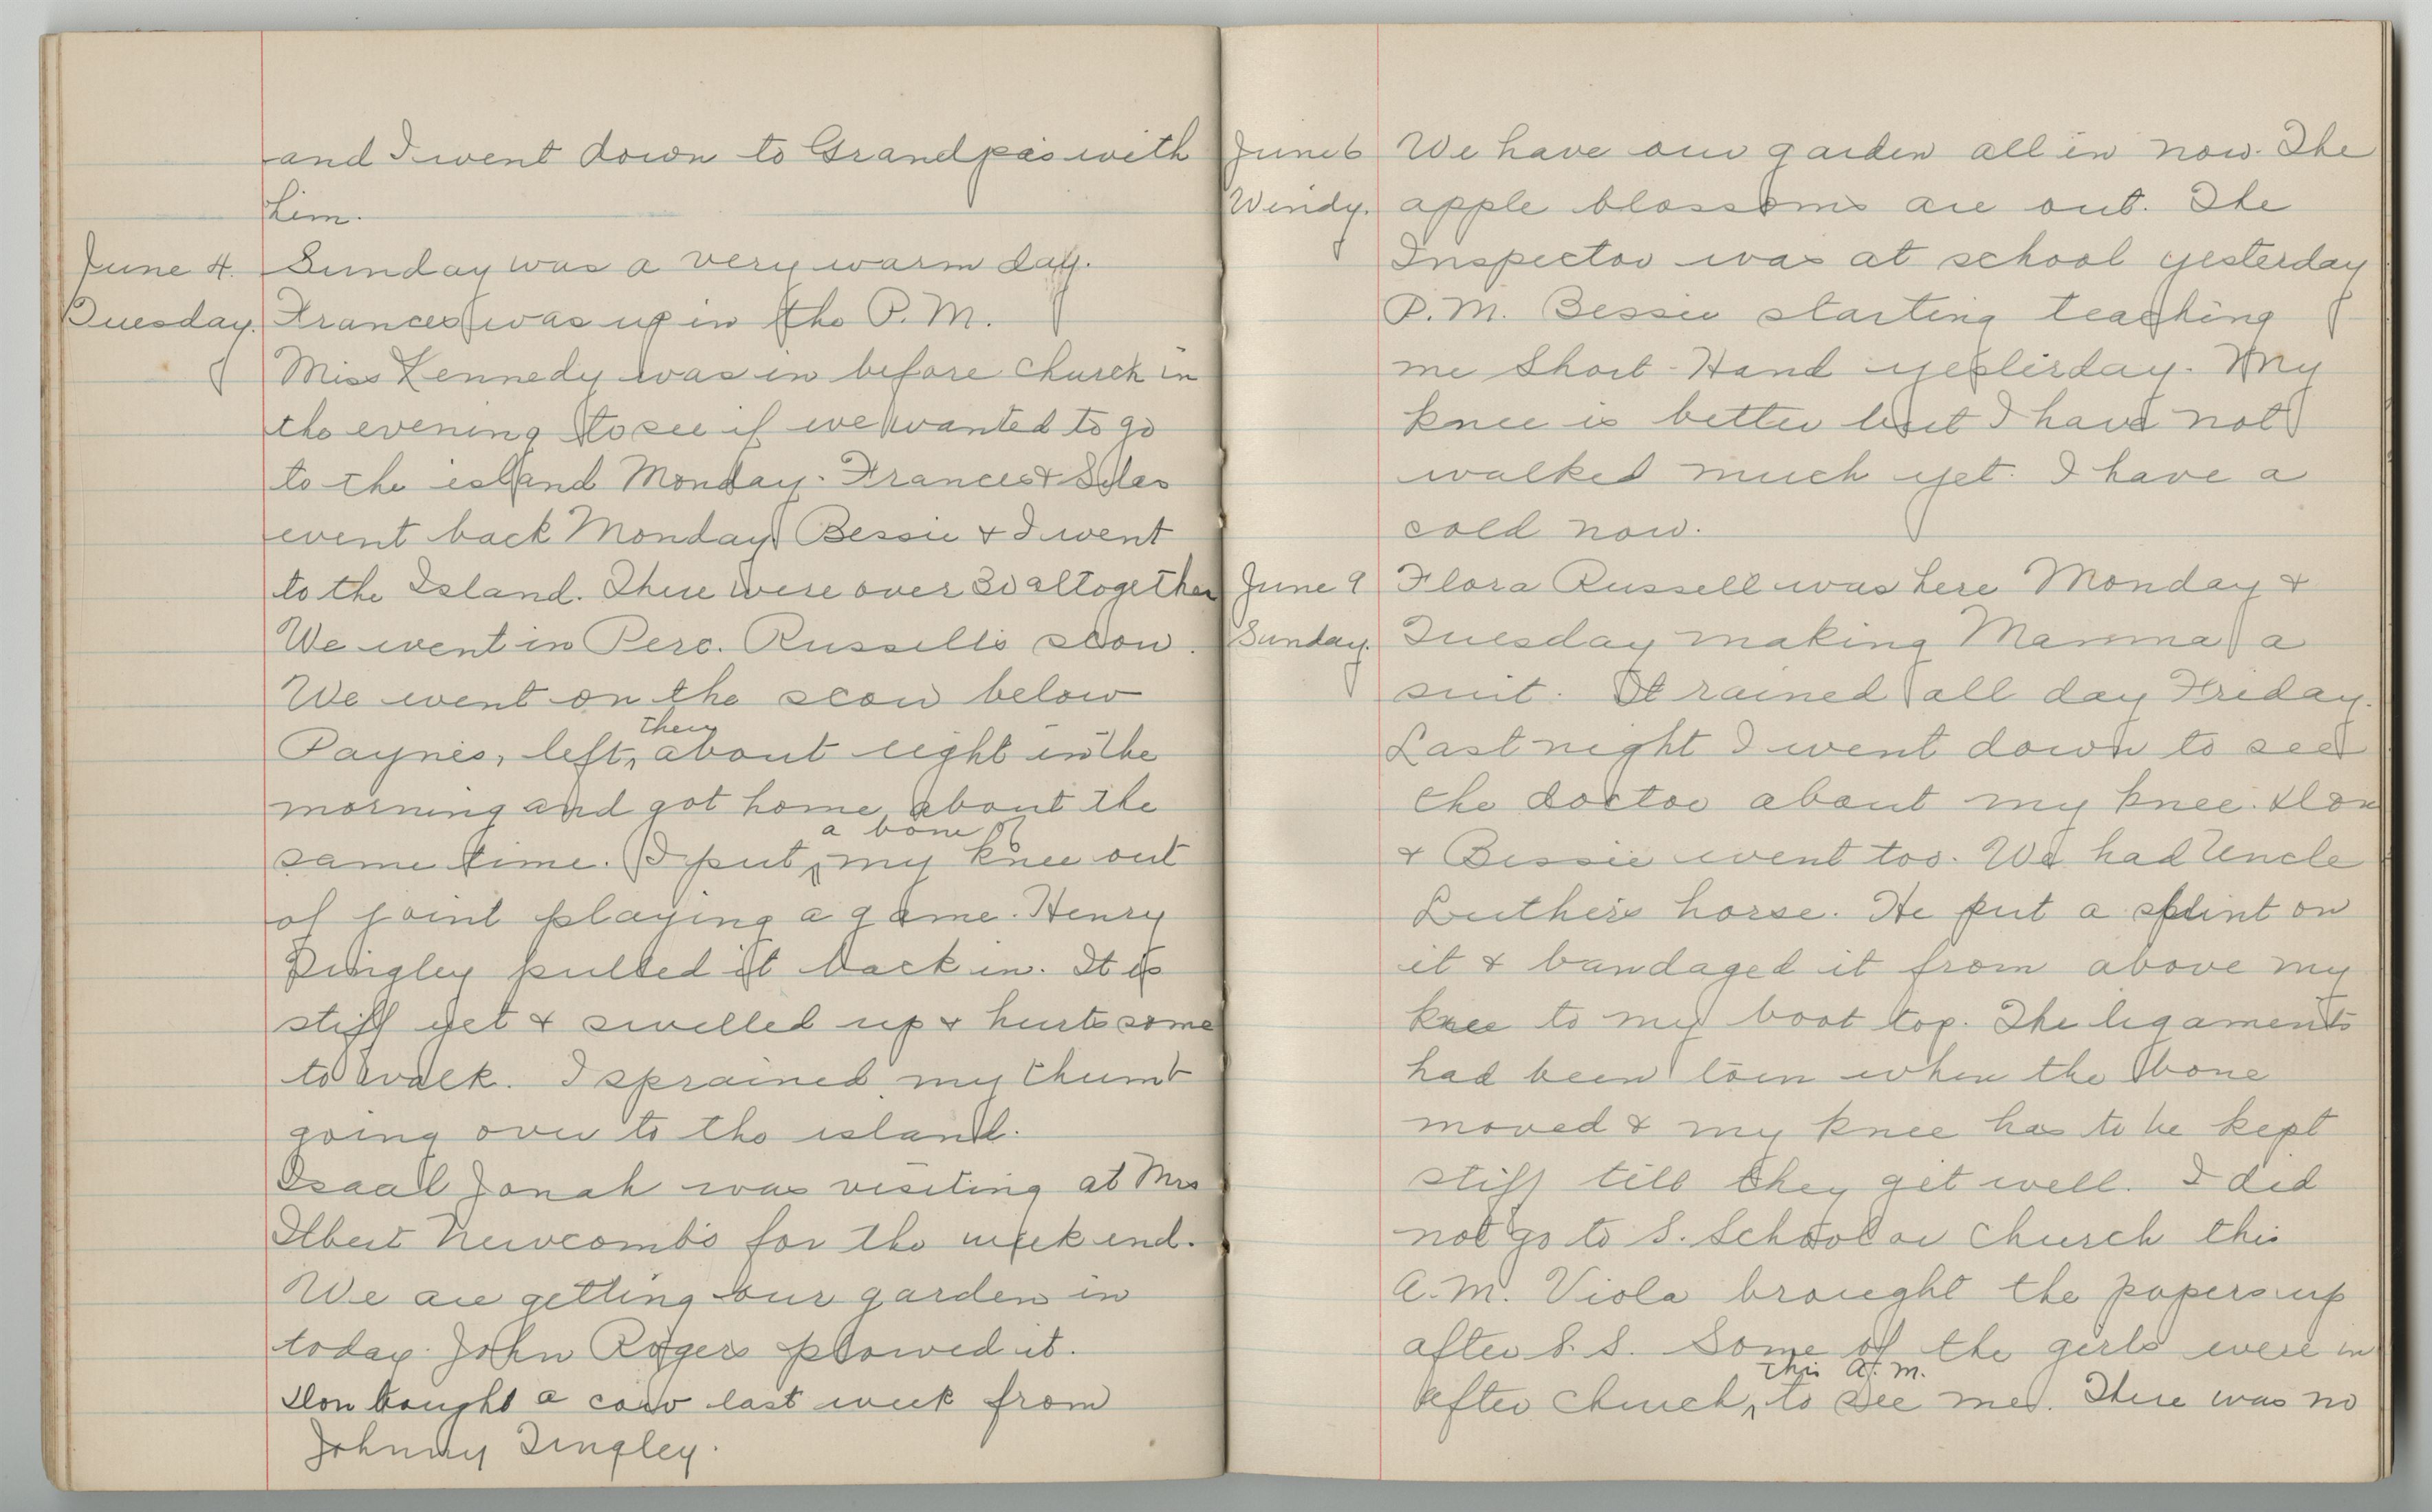 and I went down to Grandpa's with
him.
June 4. Sunday was a very warm day.
Tuesday. Frances was up in the P.M.
Miss Kennedy was in before church in
the evening to see if we wanted to go
to the island Monday. Frances & Silas
went back Monday Bessie & I went
to the Island. There were over 30 altogether
We went in Perc. Russell's scow.
We went on the scow below
Payne's, left, then about eight in the
morning and got home about the
same time. I put a bone of my knee out
of joint playing a game. Henry
Dingley pulled it back in. It is
stiff yet & swelled up & hurts some
to walk. I sprained my thumb
going over to the island.
Isaal Jonah was visiting at Mrs
Ilbert Newcomb's for the week end.
We are getting our garden in
today. John Rogers plowed it.
Don bought a cow last week from
Johnny Tingley.
June 6 We have our garden all in now. The
Windy. apple blossoms are out. The
Inspector was at school yesterday
P.M. Bessie starting teaching
me Short-Hand yesterday. My
knee is better but I have not
walked much yet. I have a
cold now.
June 9 Flora Russell was here Monday &
Sunday. Tuesday making Mamma a
suit. It rained all day Friday.
Last night I went down to see
the doctor about my knee. Don
& Bessie went too. We had Uncle
Luther's horse. He put a splint on
it & bandaged it from above my
knee to my boot top. The ligaments
had been torn when the bone
moved & my knee has to be kept
stiff till they get well. I did
not go to S. School or church this
A.M. Viola brought the papers up
after S.S. Some of the girls were in
after church, this A.M. to see me. There was no